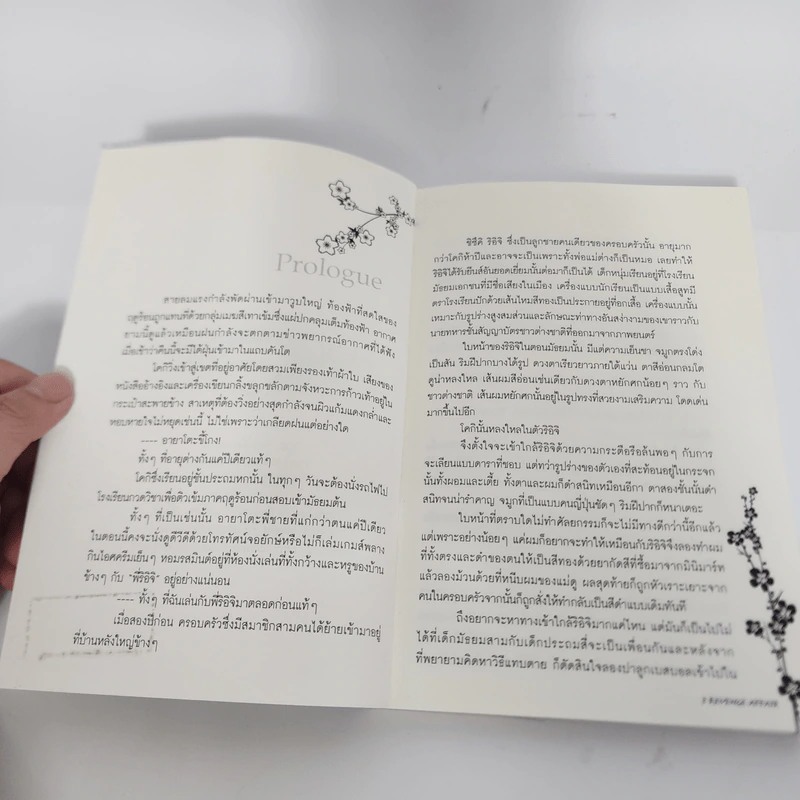 Prologue
สายลมแรงกำลังพัดผ่านเข้ามาวูบใหญ่ ท้องฟ้าที่สดใสของ
ฤดูร้อนถูกแทนที่ด้วยกลุ่มเมฆสีเทาเข้มซึ่งแผ่ปกคลุมเต็มท้องฟ้า อากาศ
ยามนี้ดูแล้วเหมือนฝนกำลังจะตกตามข่าวพยากรณ์อากาศที่ได้ฟัง
เมื่อเช้าว่าคืนนี้จะมีไต้ฝุ่นเข้ามาในแถบคันโต
โคกิวิ่งเข้าสู่เขตที่อยู่อาศัยโดยสวมเพียงรองเท้าผ้าใบ เสียงของ
หนังสืออ้างอิงและเครื่องเขียนกลิ้งขลุกขลักตามจังหวะการก้าวเท้าอยู่ใน
กระเป๋าสะพายข้าง สาเหตุที่ต้องวิ่งอย่างสุดกำลังจนผิวแก้มแดงก่ำและ
หอบหายใจไม่หยุดเช่นนี้ ไม่ใช่เพราะว่าเกลียดฝนแต่อย่างใด
---- อายาโตะขี้โกง!
ทั้งๆ ที่อายุต่างกันแค่ปีเดียวแท้ๆ
โคกิซึ่งเรียนอยู่ชั้นประถมหกนั้น ในทุกๆ วันจะต้องนั่งรถไฟไป
โรงเรียนกวดวิชาเพื่อติวเข้มภาคฤดูร้อนก่อนสอบเข้ามัธยมต้น
ทั้งๆ ที่เป็นเช่นนั้น อายาโตะพี่ชายที่แก่กว่าตนแค่ปีเดียว
ในตอนนี้คงจะนั่งดูดีวีดีด้วยโทรทัศน์จอยักษ์หรือไม่ก็เล่มเกมส์พลาง
กินไอศครีมเย็นๆ หอมรสมินต์อยู่ที่ห้องนั่งเล่นที่ทั้งกว้างและหรูของบ้าน
ข้างๆ กับ "พี่ริอิจิ" อยู่อย่างแน่นอน
---- ทั้งๆ ที่ฉันเล่นกับพี่ริอิจิมาตลอดก่อนแท้ๆ
เมื่อสองปีก่อน ครอบครัวซึ่งมีสมาชิกสามคนได้ย้ายเข้ามาอยู่
ที่บ้านหลังใหญ่ข้างๆ
ริอิจิ ซึ่งเป็นลูกชายคนเดียวของครอบครัวนั้น อายุมาก
กว่าโคกิห้าปีและอาจจะเป็นเพราะทั้งพ่อแม่ต่างก็เป็นหมอ เลยทำให้
ริอิจิได้รับยีนส์อันยอดเยี่ยมนั้นต่อมาก็เป็นได้ เด็กหนุ่มเรียนอยู่ที่โรงเรียน
มัธยมเอกชนที่มีชื่อเสียงในเมือง เครื่องแบบนักเรียนเป็นแบบเสื้อสูทมี
ตราโรงเรียนปักด้วยเส้นไหมสีทองเป็นประกายอยู่ที่อกเสื้อ เครื่องแบบนั้น
เหมาะกับรูปร่างสูงสมส่วนและลักษณะท่าทางอันสง่างามของเขาราวกับ
นายทหารชั้นสัญญาบัตรชาวต่างชาติที่ออกมาจากภาพยนตร์
ใบหน้าของริอิจิในตอนมัธยมนั้น มีแต่ความเย็นชา จมูกตรงโด่ง
เป็นสัน ริมฝีปากบางได้รูป ดวงตาเรียวยาวภายใต้แว่น ตาสีอ่อนกลมโต
ดูน่าหลงใหล เส้นผมสีอ่อนเช่นเดียวกับดวงตาหยักศกน้อยๆ ราว กับ
ชาวต่างชาติ เส้นผมหยักศกนั้นอยู่ในรูปทรงที่สวยงามเสริมความ โดดเด่น
มากขึ้นไปอีก
โคกินั้นหลงใหลในตัวริอิจิ
จึงตั้งใจจะเข้าใกล้ริอิจิด้วยความกระตือรือล้นพอๆ กับการ
จะเลียนแบบดาราที่ชอบ แต่ทว่ารูปร่างของตัวเองที่สะท้อนอยู่ในกระจก
นั้นทั้งผอมและเตี้ย ทั้งตาและผมก็ดำสนิทเหมือนอีกา ตาสองชั้นนั้นดำ
สนิทจนน่ารำคาญ จมูกที่เป็นแบบคนญี่ปุ่นชัดๆ ริมฝีปากก็หนาเตอะ
ใบหน้าที่ตราบใดไม่ทำศัลยกรรมก็จะไม่มีทางดีกว่านี้อีกแล้ว
แต่เพราะอย่างน้อยๆ แค่ผมก็อยากจะทำให้เหมือนกับริอิจิจึงลองทำผม
ที่ทั้งตรงและดำของตนให้เป็นสีทองด้วยยากัดสีที่ซื้อมาจากมินิมาร์ท
แล้วลองม้วนด้วยที่หนีบผมของแม่ดู ผลสุดท้ายก็ถูกหัวเราะเยาะจาก
คนในครอบครัวจากนั้นก็ถูกสั่งให้ทำกลับเป็นสีดำแบบเดิมทันที
ถึงอยากจะหาทางเข้าใกล้ริอิจิมากแค่ไหน แต่มันก็เป็นไปไม่
ได้ที่เด็กมัธยมสามกับเด็กประถมสี่จะเป็นเพื่อนกันและหลังจาก
ที่พยายามคิดหาวิธีแทบตาย ก็ตัดสินใจลองปาลูกเบสบอลเข้าไปใน